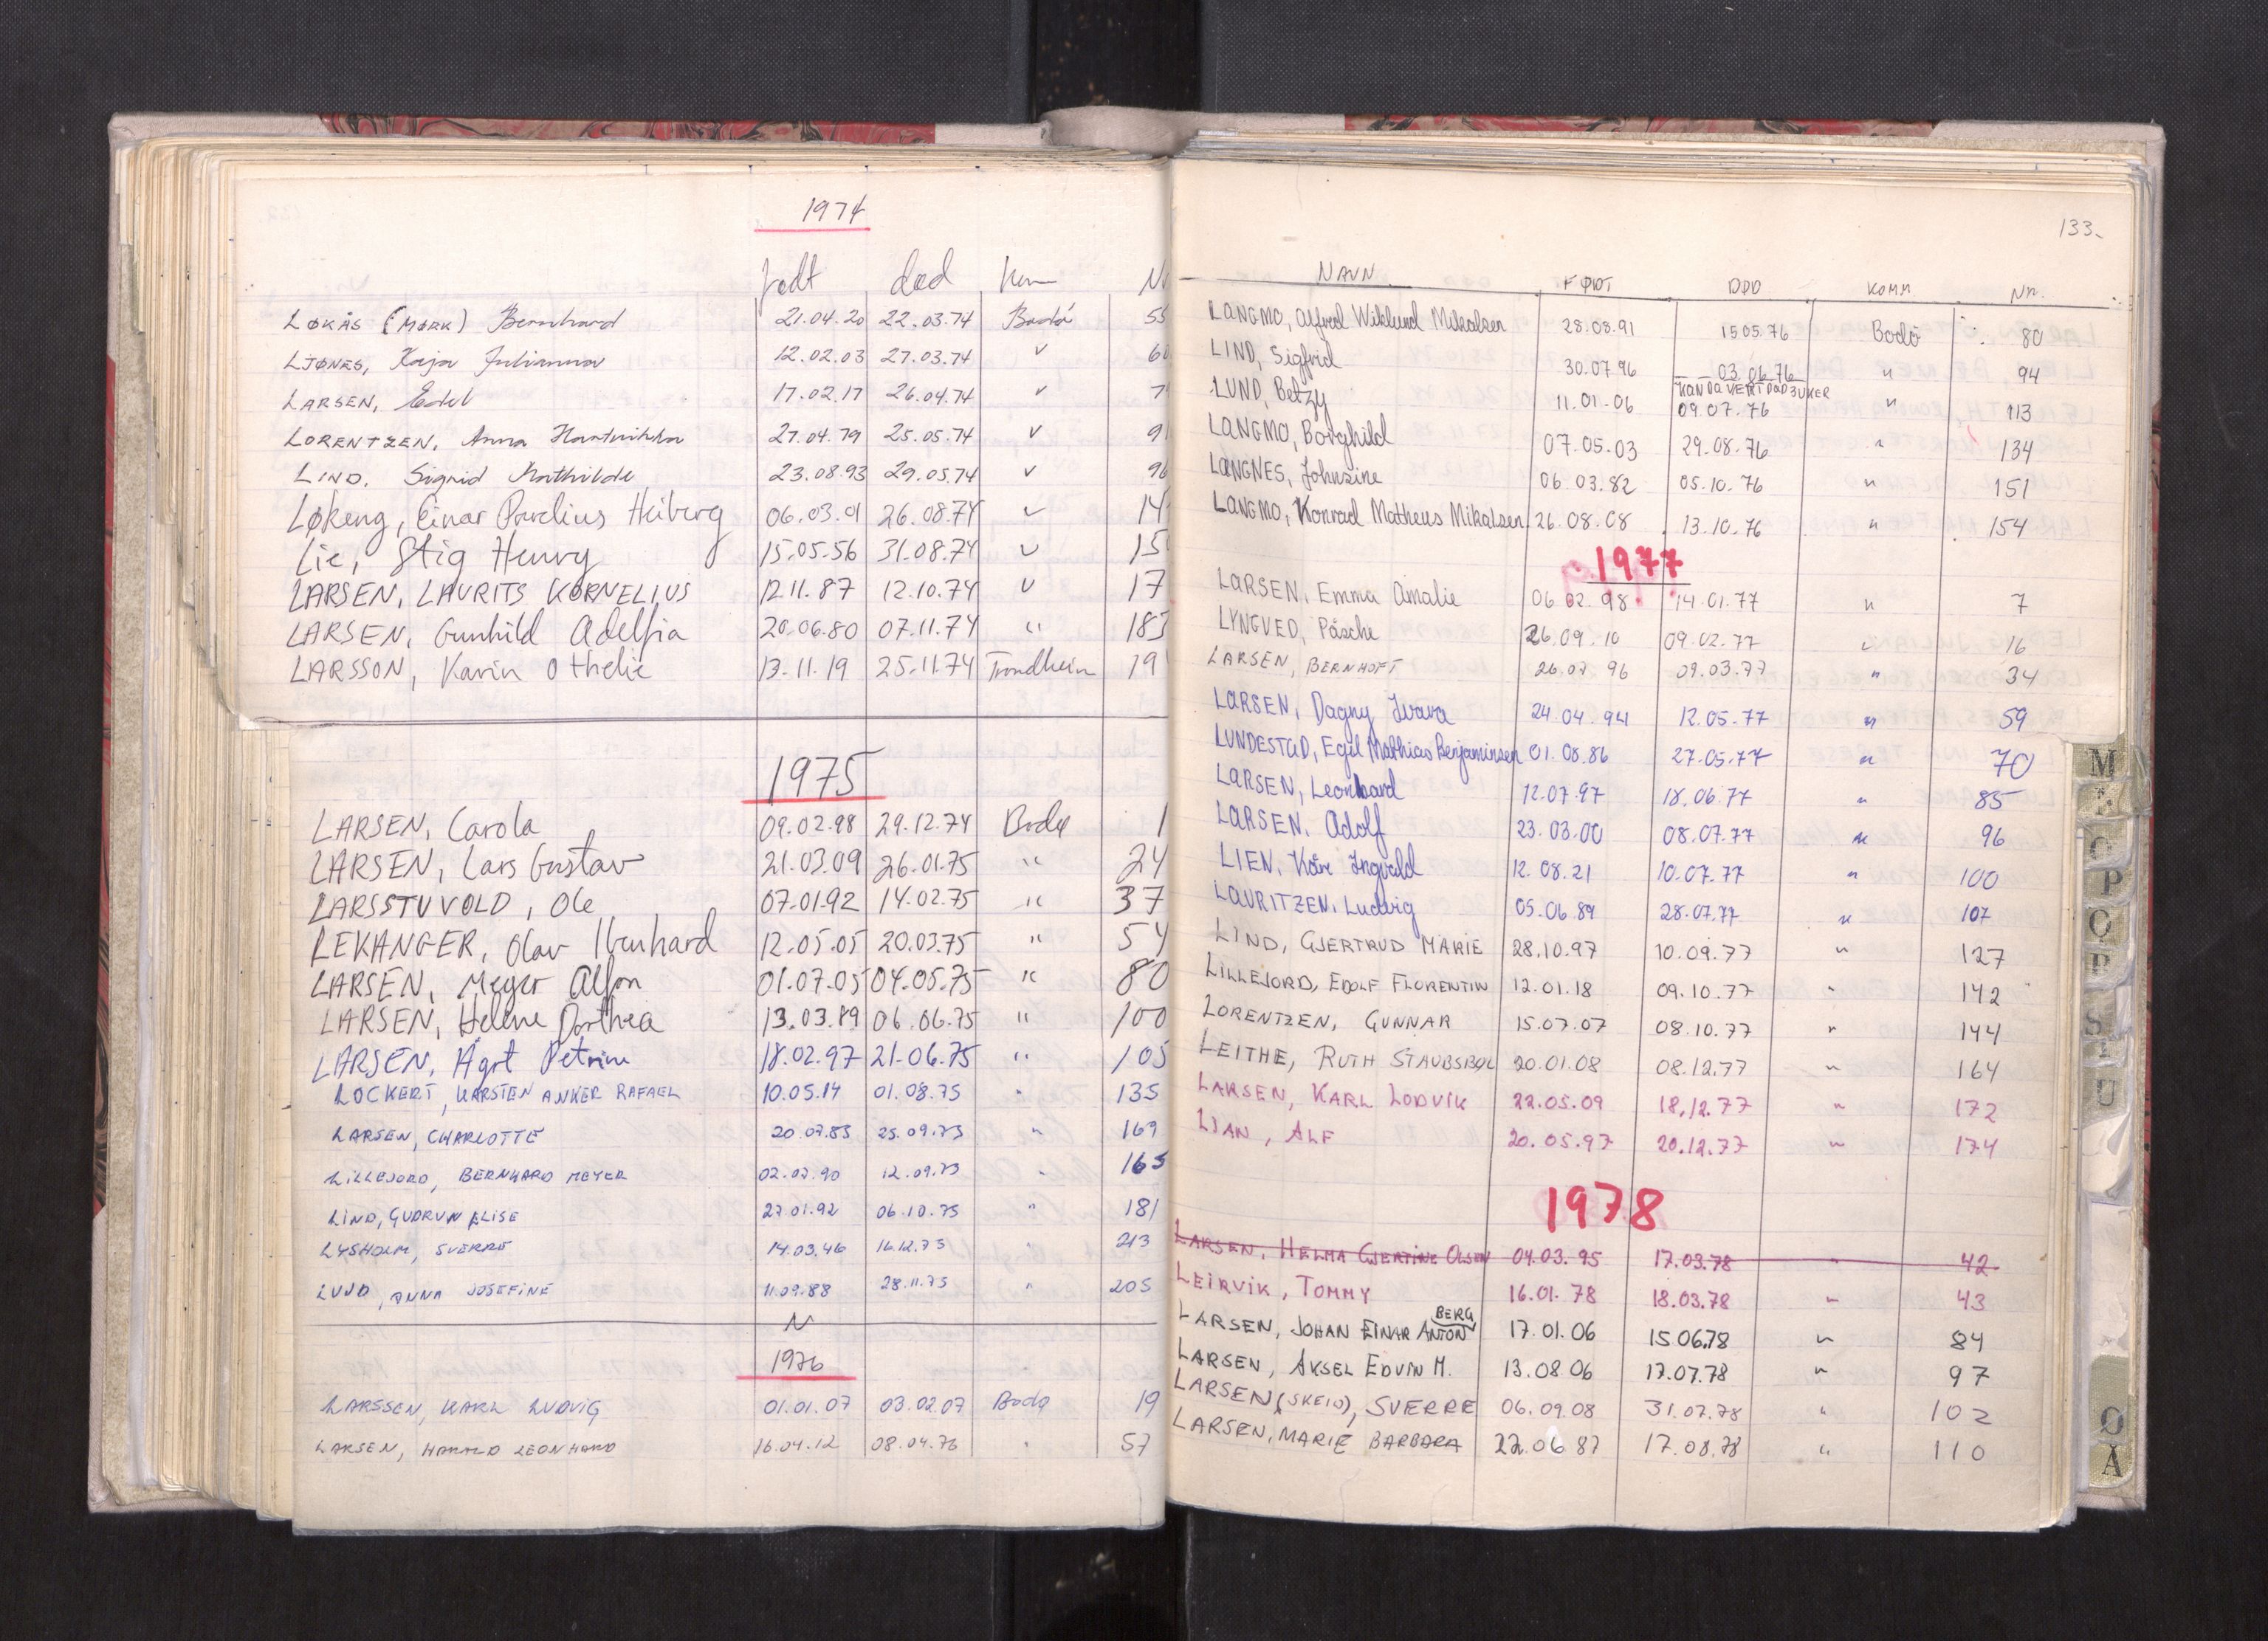 1974
født død Kom Nr
LØKÅS (MØRK) Bernhard 21.04.20 22.03.74 Bodø 55
LJØNES, Kaja Julianna 12.02.03 27.03.74 v 60
LARSEN, Edel 17.02.17 26.04.74 v 7
LORENTZEN, Anna 27.04.79 25.05.74 v 91
LIND, Sigrid Mathilde 23.08.93 29.05.74 v 96
Løkeng, Einar Parelius Heiberg 06.03.01 26.08.74 v 14
Lie, Stig Henry 15.05.56 31.08.74 v 15
LARSEN, LAURITS KORNELIUS 12.11.87 12.10.74 v 17
LARSEN, Gunhild Adelfia 20.06.80 07.11.74 " 183
LARSSON, Karin Othelie 13.11.19 25.11.74 Trondheim 19
1975
LARSEN, Carola 09.02.98 29.12.74 Bodø 1
LARSEN, Lars Gustav 21.03.09 26.01.75 " 24
LARSSTUVOLD, Ole 07.01.92 14.02.75 " 37
LEKANGER, Olav Ibenhard 12.05.05 20.03.75 " 54
LARSEN, Meyer Alfon 01.07.05 04.05.75 " 80
LARSEN, Helene Dorthea 13.03.89 06.06.75 " 100
LARSEN, Ågot Petrine 18.02.97 21.06.75 " 105
LOCKERT, KARSTEN ANKER RAFAEL 10.05.14 01.08.75 " 135
LARSEN, CHARLOTTE 20.07.83 25.09.75 " 169
LILLEJORD, BERNHARD MEYER 02.07.90 12.09.75 " 165
LIND, GUDRUN ELISE 27.01.92 06.10.75 " 181
LYSHOLM, SVERRE 14.03.46 16.12.75 " 213
LUND, ANNA JOSEFINE 11.09.88 28.11.75 " 205
N
1976
LARSSEN, KARL LUDVIG 01.01.07 03.02.07 Bodø 19
LARSEN, HARALD LEONHARD 16.04.12 08.04.76 " 57
133.
NAVN FØDT DØD KOMM NR.
LANGMO, Alfred Wiklund Mikalsen 28.08.91 15.05.76 Bodø 80
LIND, Sigfrid 30.07.96 03.06.76 " 94
KAN DA VERT DØD 3 UKER
LUND, Betzy 11.01.06 09.07.76 " 113
LANGMO, Borghild 07.05.03 29.08.76 " 134
LANGNES, Johnsine 06.03.82 05.10.76 " 151
LANGMO, Konrad Matheus Mikalsen 26.08.08 13.10.76 " 154
1977
LARSEN, Emma Amalie 06.02.98 14.01.77 " 7
LYNGVED, Påsche 26.09.10 09.02.77 " 16
LARSEN, BERNHOFT 26.07.96 09.03.77 " 34
LARSEN, Dagny Ivara 24.04.94 12.05.77 " 59
LUNDESTAD, Egil Mathias Benjaminsen 01.08.86 27.05.77 " 70
LARSEN, Leonhard 12.07.97 18.06.77 " 85
LARSEN, Adolf 23.03.00 08.07.77 " 96
LIEN, Kåre Ingvald 12.08.21 10.07.77 " 100
LAURITZEN, Ludvig 05.06.89 28.07.77 " 107
LIND, GJERTRUD MARIE 28.10.97 10.09.77 " 127
LILLEJORD, EDOLF FLORENTIN 12.01.18 09.10.77 " 142
LORENTZEN, GUNNAR 15.07.07 08.10.77 " 144
LEITHE, RUTH STAUBSBØL 20.01.08 08.12.77 " 164
LARSEN, KARL LODVIK 22.05.09 18.12.77 " 172
LIAN, ALF 20.05.97 20.12.77 " 174
1978
LARSEN, HELMA GJERTINE OLSEN 04.03.95 17.03.78 " 42
LEIRVIK, TOMMY 16.01.78 18.03.78 " 43
BERG
LARSEN, JOHAN EINAR ANTON 17.01.06 15.06.78 " 84
LARSEN, AKSEL EDVIN M. 13.08.06 17.07.78 " 97
LARSEN (SKEID), SVERRE 06.09.08 31.07.78 " 102
LARSEN, MARIE BARBARA 22.06 87 17.08.78 " 110
M
N
O
P
Q
R
S
T
U
Ø
Å